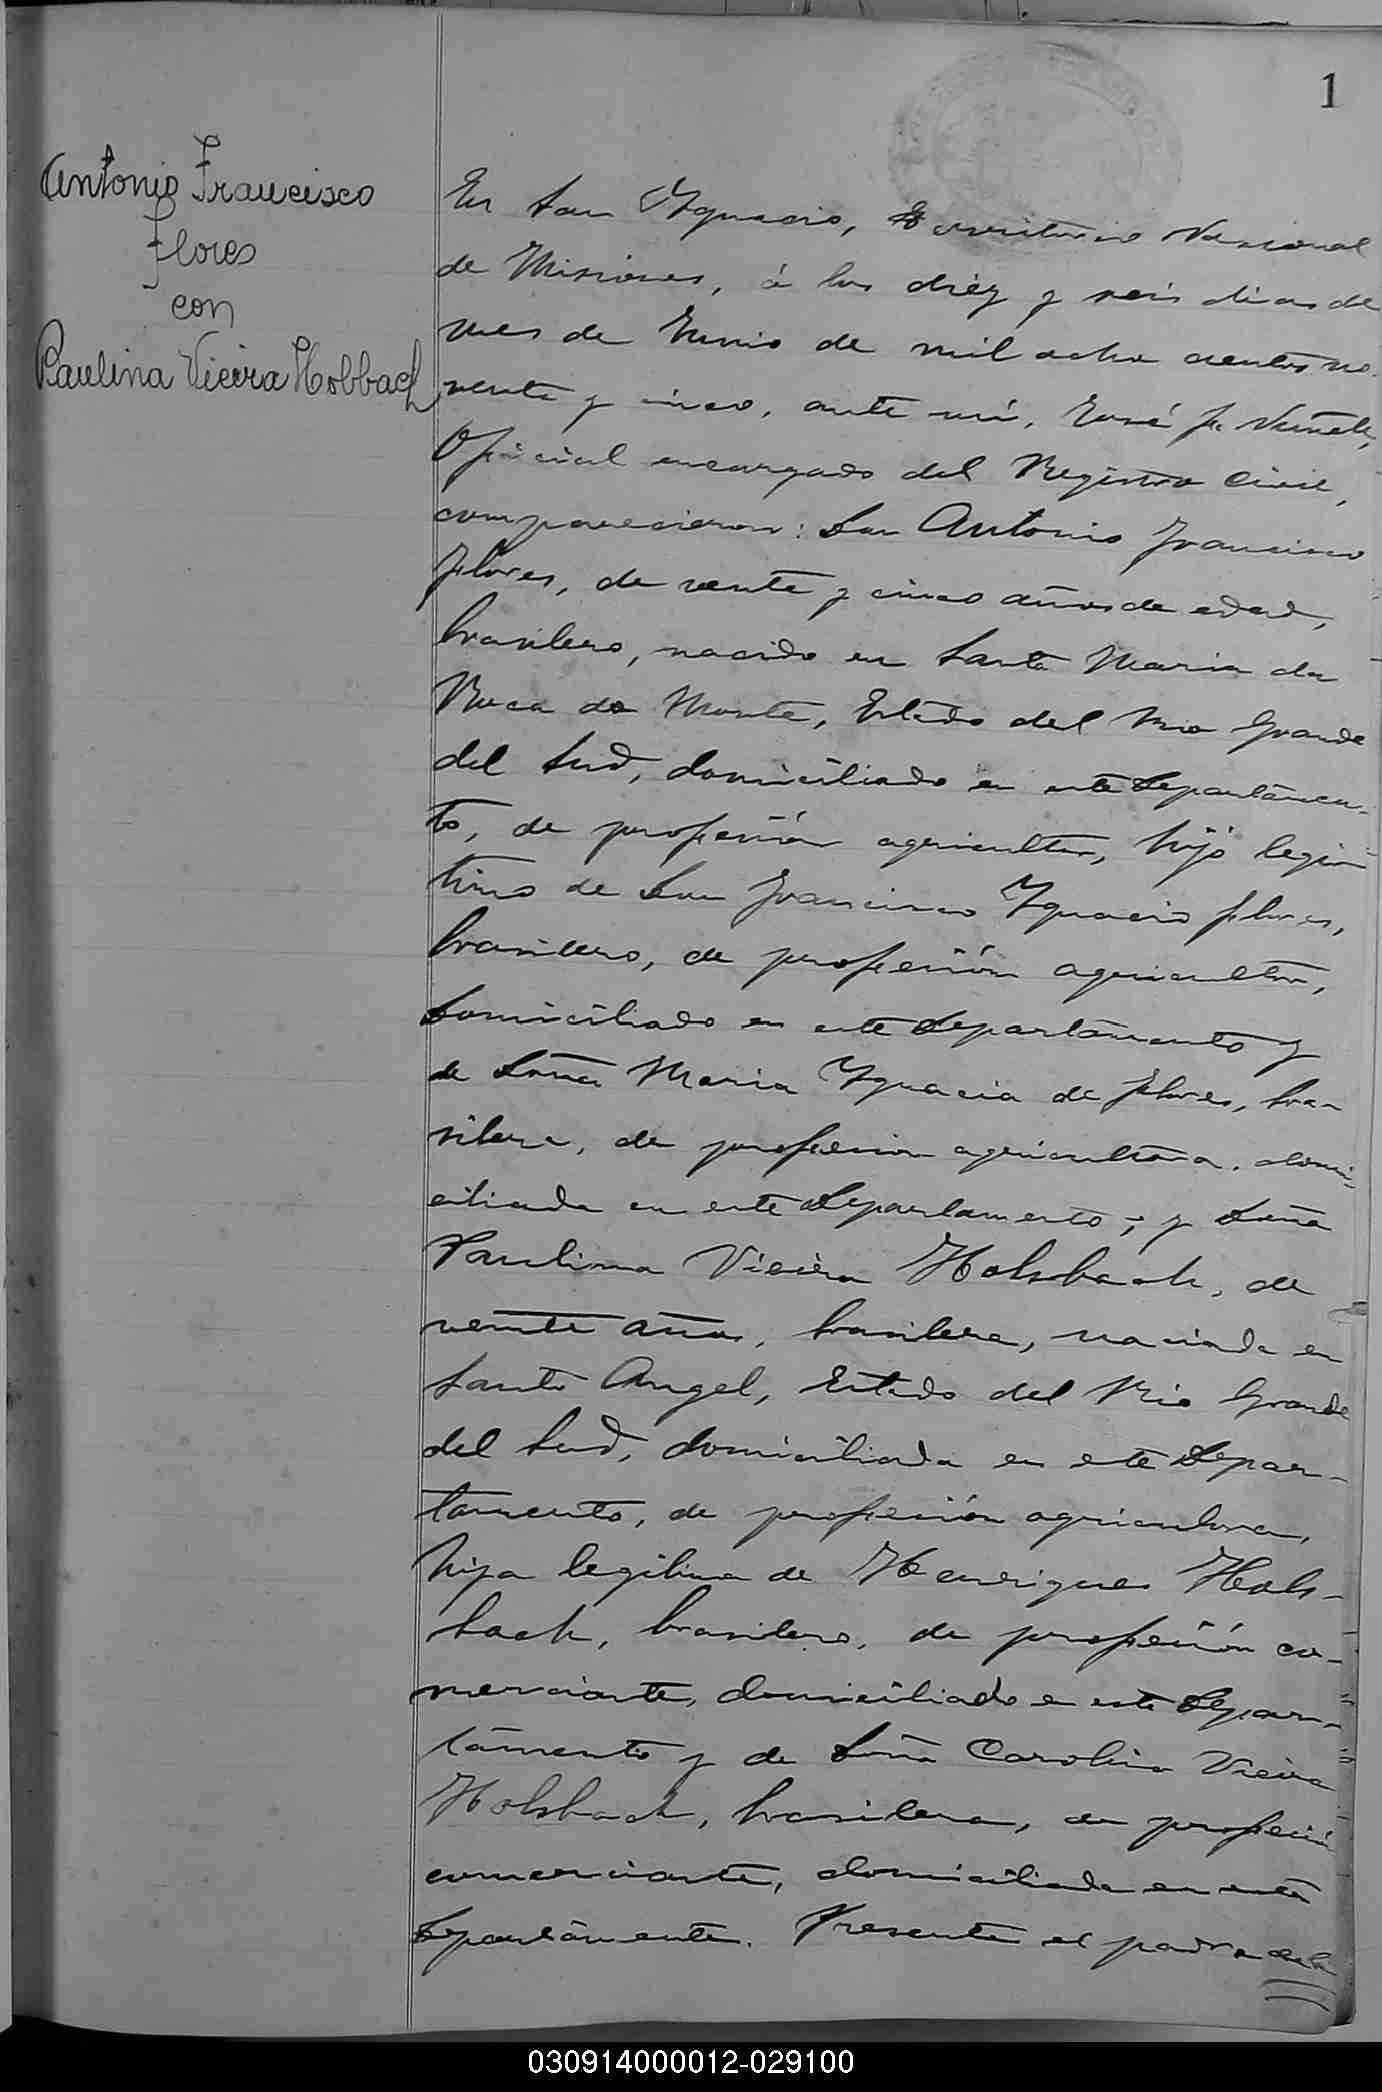 1
Antonio Francisco
Flores
con
Paulina Vieira Holbbach
En San Ygnacio, Territorio Nacional
de Misiones, á los diéz y seis dias de
mes de Junio de mil ocho cientos no-
venta y cinco, ante mí, José F.
Oficial encargado del Registro Civil,
comparecieron: Don Antonio Francisco
Flores, de veinte y cinco años de edad,
brasilero, nacido en Santa Maria da
Boca do Monte, Estado del Rio Grande
del Sud, domiciliado en este Departamen-
to, de profesión agricultor, hijo legi-
timo de Don Francisco Ygnacio Flores,
brasilero, de profesión agricultor,
domiciliado en este Departamento y
de Doña Maria Ygnacia de Flores, bra-
silera, de profesion agricultora, domi-
ciliada en este Departamento; y Doña
Paulina Vieira Holsbach, de
veinte años, brasilera, nacida en
Santo Angel, Estado del Rio Grande
del Sud, domiciliada en este Depar-
tamento, de profesión agricultora,
hija legitima de Henriques Hols-
bach, brasilero, de profesión co-
merciante, domiciliado en este Depar-
tamento y de Doña Carolina Vieira
Holsbach, brasilera, de profesión
comerciante, domiciliada en este
Departamento. Presente el padre de la
030914000012-029100